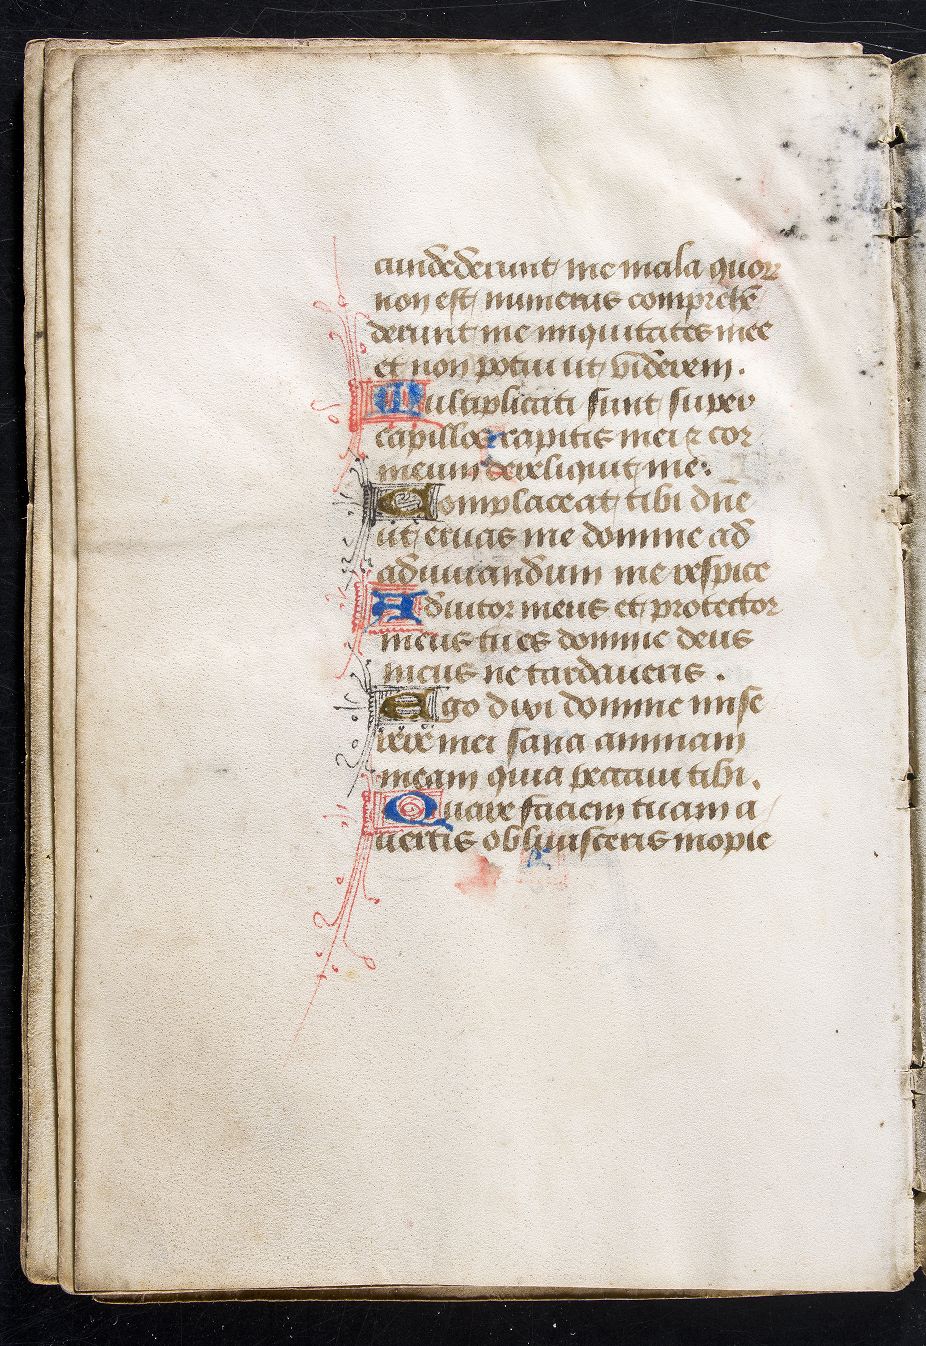 cundederunt me mala quoꝝ
non est numerus comprehē
derunt me iniquitates mee
et non potui ut viderem .
Multiplicati sunt super
capillos capitis mei ⁊ cor
meum dereliquit me .
Complaceat tibi dn̄e
ut eruas me domine ad
adiuuandum me respice
Adiutor meus et protector
meus tu es domine deus
meus ne tardaueris .
Ego dixi domine mise
rere mei sana animam
meam quia peccaui tibi .
Quare faciem tuam a
uertis obliuisceris inopie